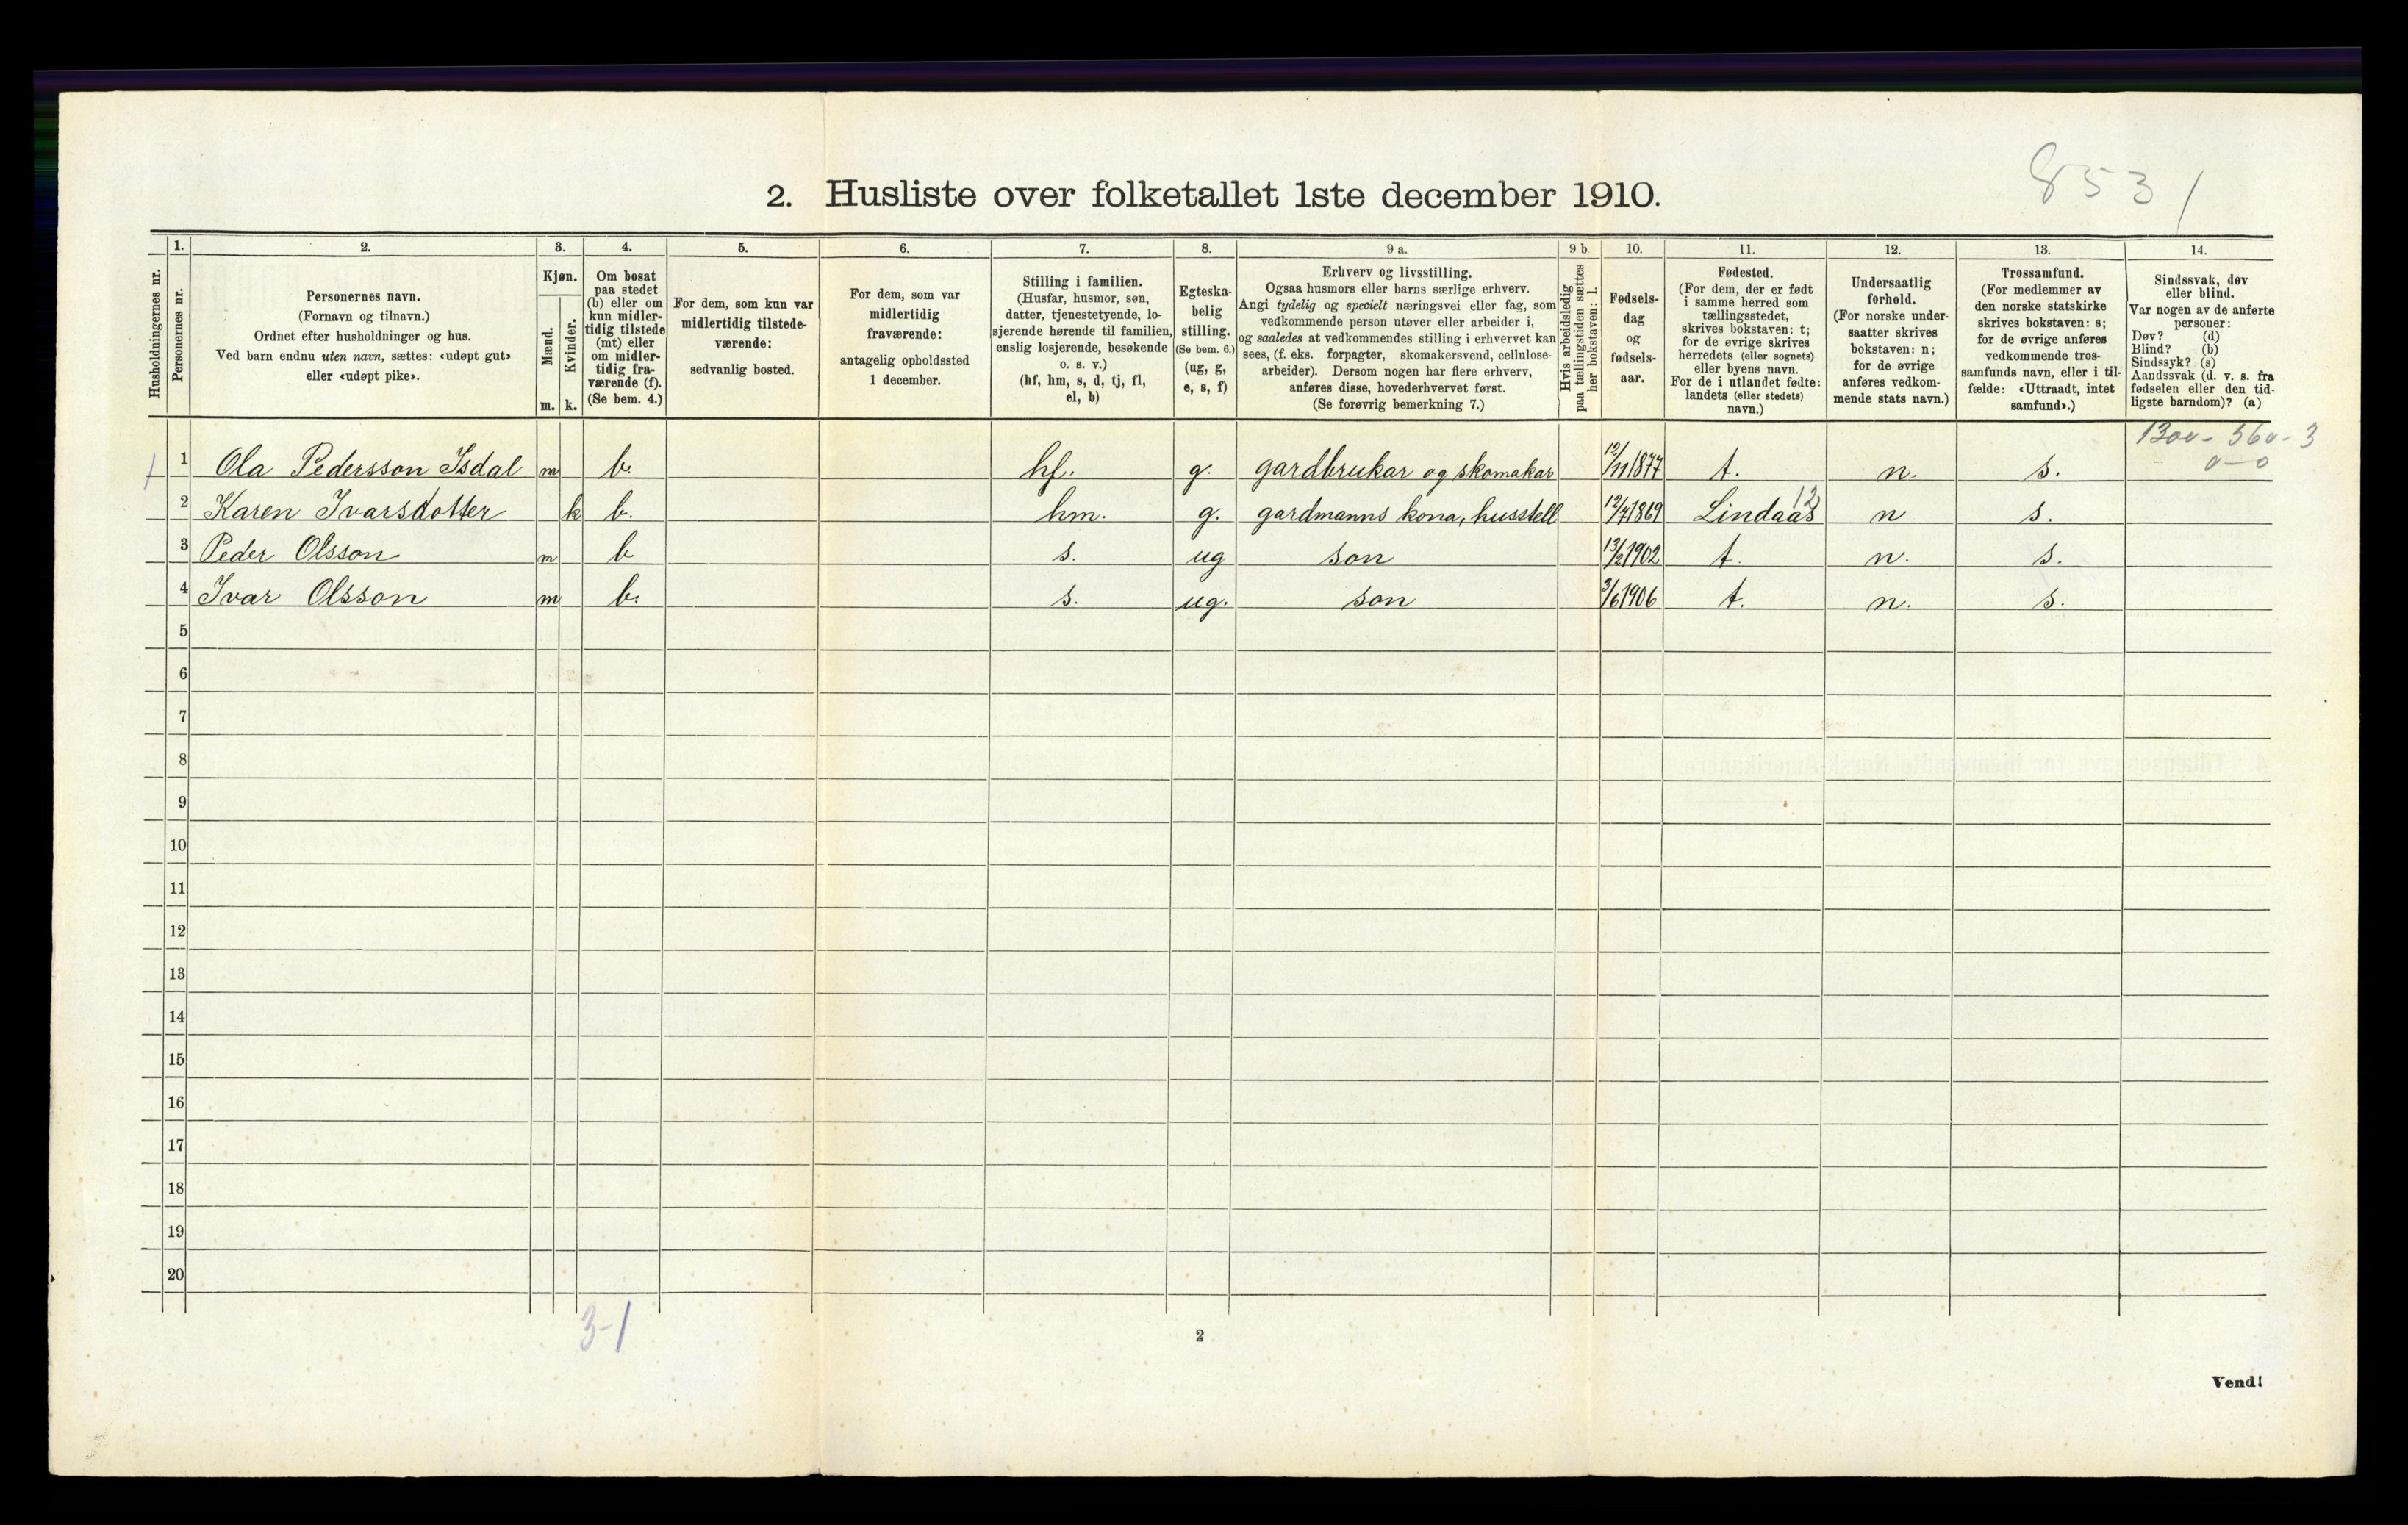 8531
2. Husliste over folketallet 1ste december 1910.
1. 2. 3. 4. 5. 6. 7. 8. 9 a. 9 b 10. 11. 12. 13. 14.
Husholdningernes nr.
Personernes nr.
Personernes navn.
(Fornavn og tilnavn.)
Ordnet efter husholdninger og hus.
Ved barn endnu uten navn, sættes: «udøpt gut»
eller «udøpt pike».
Kjøn.
Mænd.
Kvinder.
m. k.
Om bosat
paa stedet
(b) eller om
kun midler-
tidig tilstede
(mt) eller
om midler-
tidig fra-
værende (f).
(Se bem. 4.)
For dem, som kun var
midlertidig tilstede-
værende:
sedvanlig bosted.
For dem, som var
midlertidig
fraværende:
antagelig opholdssted
1 december.
Stilling i familien.
(Husfar, husmor, søn,
datter, tjenestetyende, lo-
sjerende hørende til familien,
enslig losjerende, besøkende
o. s. v.)
(hf, hm, s, d, tj, fl,
el, b)
Egteska-
belig
stilling.
(Se bem. 6.)
(ug, g,
e, s, f)
Erhverv og livsstilling.
Ogsaa husmors eller barns særlige erhverv.
Angi tydelig og specielt næringsvei eller fag, som
vedkommende person utøver eller arbeider i,
og saaledes at vedkommendes stilling i erhvervet kan
sees, (f. eks. forpagter, skomakersvend, cellulose-
arbeider). Dersom nogen har flere erhverv,
anføres disse, hovederhvervet først.
(Se forøvrig bemerkning 7.)
Hvis arbeidsledig
paa tællingstiden sættes
her bokstaven: l.
Fødsels-
dag
og
fødsels-
aar.
Fødested.
(For dem, der er født
i samme herred som
tællingsstedet,
skrives bokstaven: t;
for de øvrige skrives
herredets (eller sognets)
eller byens navn.
For de i utlandet fødte:
landets (eller stedets)
navn.)
Undersaatlig
forhold.
(For norske under-
saatter skrives
bokstaven: n;
for de øvrige
anføres vedkom-
mende stats navn.)
Trossamfund.
(For medlemmer av
den norske statskirke
skrives bokstaven: s;
for de øvrige anføres
vedkommende tros-
samfunds navn, eller i til-
fælde: «Uttraadt, intet
samfund».)
Sindssvak, døv
eller blind.
Var nogen av de anførte
personer:
Døv? (d)
Blind? (b)
Sindssyk? (s)
Aandssvak (d. v. s. fra
fødselen eller den tid-
ligste barndom)? (a)
1300 - 560 - 3
0 - 0
1 Ola Pedersson Isdal m b. hf. g. gardbrukar og skomakar 12/11 1877 t. n. s.
2 Karen Ivarsdotter k b. hm. g. gardmanns kona, husstell 12/7 1869 Lindaas 12 n s.
3 Peder Olsson m b s. ug son 13/2 1902 t. n. s.
4 Ivar Olsson m b. s. ug. son 3/6 1906 t. n. s.
5
6
7
8
9
10
11
12
13
14
15
16
17
18
19
20
3-1
2
Vend!